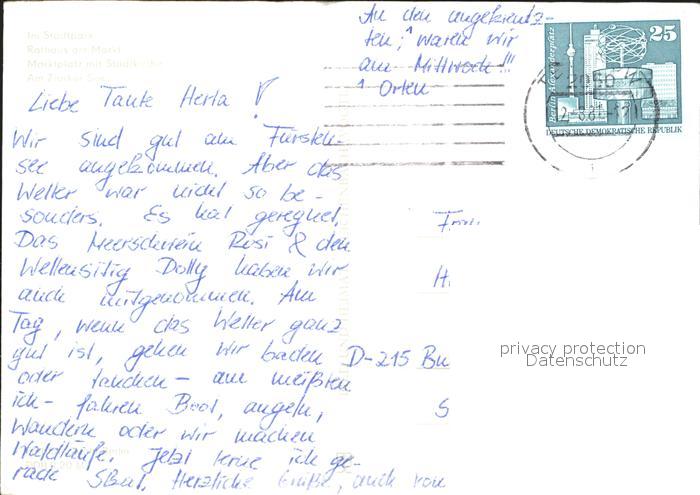 Im Stadtpark
Rathaus am Markt
Marktplatz mit Stadtkirche
Am Zenker See
An den angekreutz-
ten, waren wir
am Mittwoch!!!
Orten
Berlin Alexanderplatz
25
DEUTSCHE DEMOKRATISCHE REPUBLIK
Liebe Tante Herta!
Wir sind gut am Fürsten-
see angekommen. Aber das
Wetter war nicht so be-
sonders. Es hat geregnet.
Das Meerschwein Rosi & den
Wellensittig Dolly haben wir
auch mitgenommen. Am
Tag, wenn das Wetter ganz
gut ist, gehen wir baden
oder tauchen - am meißten
ich - fahren Boot, angeln,
Wandern oder wir machen
Waldläufe. Jetzt lerne ich ge-
rade Skat. Herzliche Grüße, auch von
Frau
H.
D-215 Bu
S
privacy protection
Datenschutz